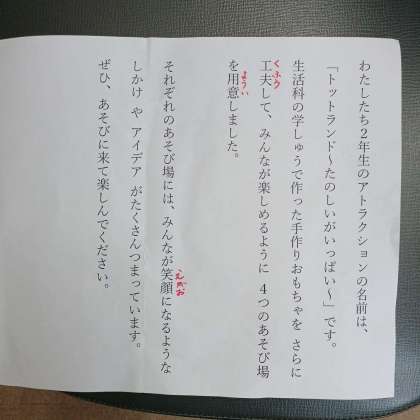 わたしたち2年生のアトラクションの名前は、
「トットランド〜たのしいがいっぱい〜」です。
生活科の学しゅうで作った手作りおもちゃを さらに
くふう
工夫して、みんなが楽しめるように 4つのあそび場
ようい
を用意しました。
それぞれのあそび場には、みんなが笑顔になるような
えがお
しかけ や アイデア がたくさんつまっています。
ぜひ、あそびに来て楽しんでください。